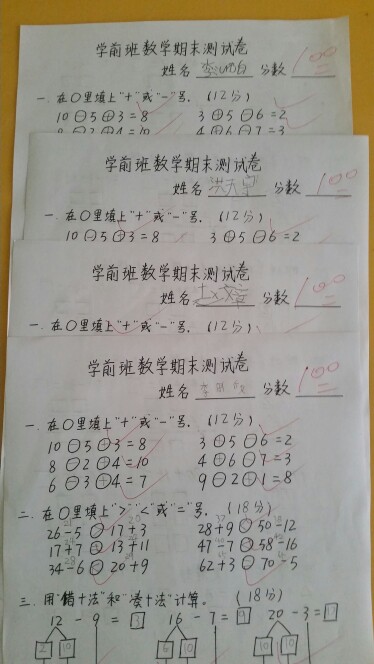 学前班数学期末测试卷
姓名 分数 100
一.在○里填上"+"或"-"号。(12分)
10⊖5⊕3=8 3⊕5⊖6=2
8⊖2⊕4=10 4⊕6⊖7=3
学前班数学期末测试卷
姓名 洪天 分数 100
一.在○里填上"+"或"-"号。(12分)
10⊖5⊕3=8 3⊕5⊖6=2
学前班数学期末测试卷
姓名 分数 100
一.在○里填上"+"或"-"号。(12分)
学前班数学期末测试卷
姓名 李 分数 100
一.在○里填上"+"或"-"号。(12分)
10⊖5⊕3=8 3⊕5⊖6=2
8⊖2⊕4=10 4⊕6⊖7=3
6⊖3⊕4=7 9⊖2⊕1=8
二.在○里填上">""<"或"="号。(18分)
26-5 17+3 28+9 50-12
17+7 13+11 47-7 58-16
34-6 20+9 62+3 70-5
三.用"借十法"和"凑十法"计算。(18分)
12-9=3 16-7=9 20-3=17
2 10 6 10 10 10